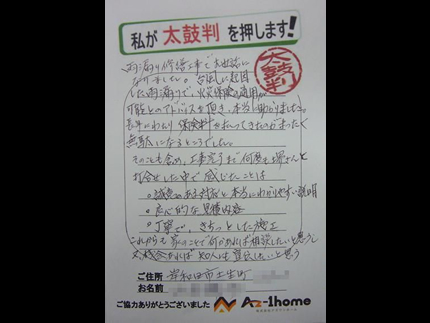 私が 太鼓判 を押します!
太鼓判
雨漏り修繕工事で大変お世話に
なりました。台風に起因
した雨漏りで、火災保険の適用が
可能とのアドバイスを頂き、本当に助かりました。
長年にわたり保険料を払ってきたのがまったく
無駄になるところでした。
そのことも含め、工事完了まで何度も堺さんと
打合せした中で感じたことは
○誠意のある対応と本当にわかりやすい説明
○良心的な見積内容
○丁寧で、きちっとした施工
これからも家のことで何かあれば相談したいと思うし
又機会があれば知人にも宣伝したいと思う
ご住所 岸和田市土生町
お名前
ご協力ありがとうございました Az-1home